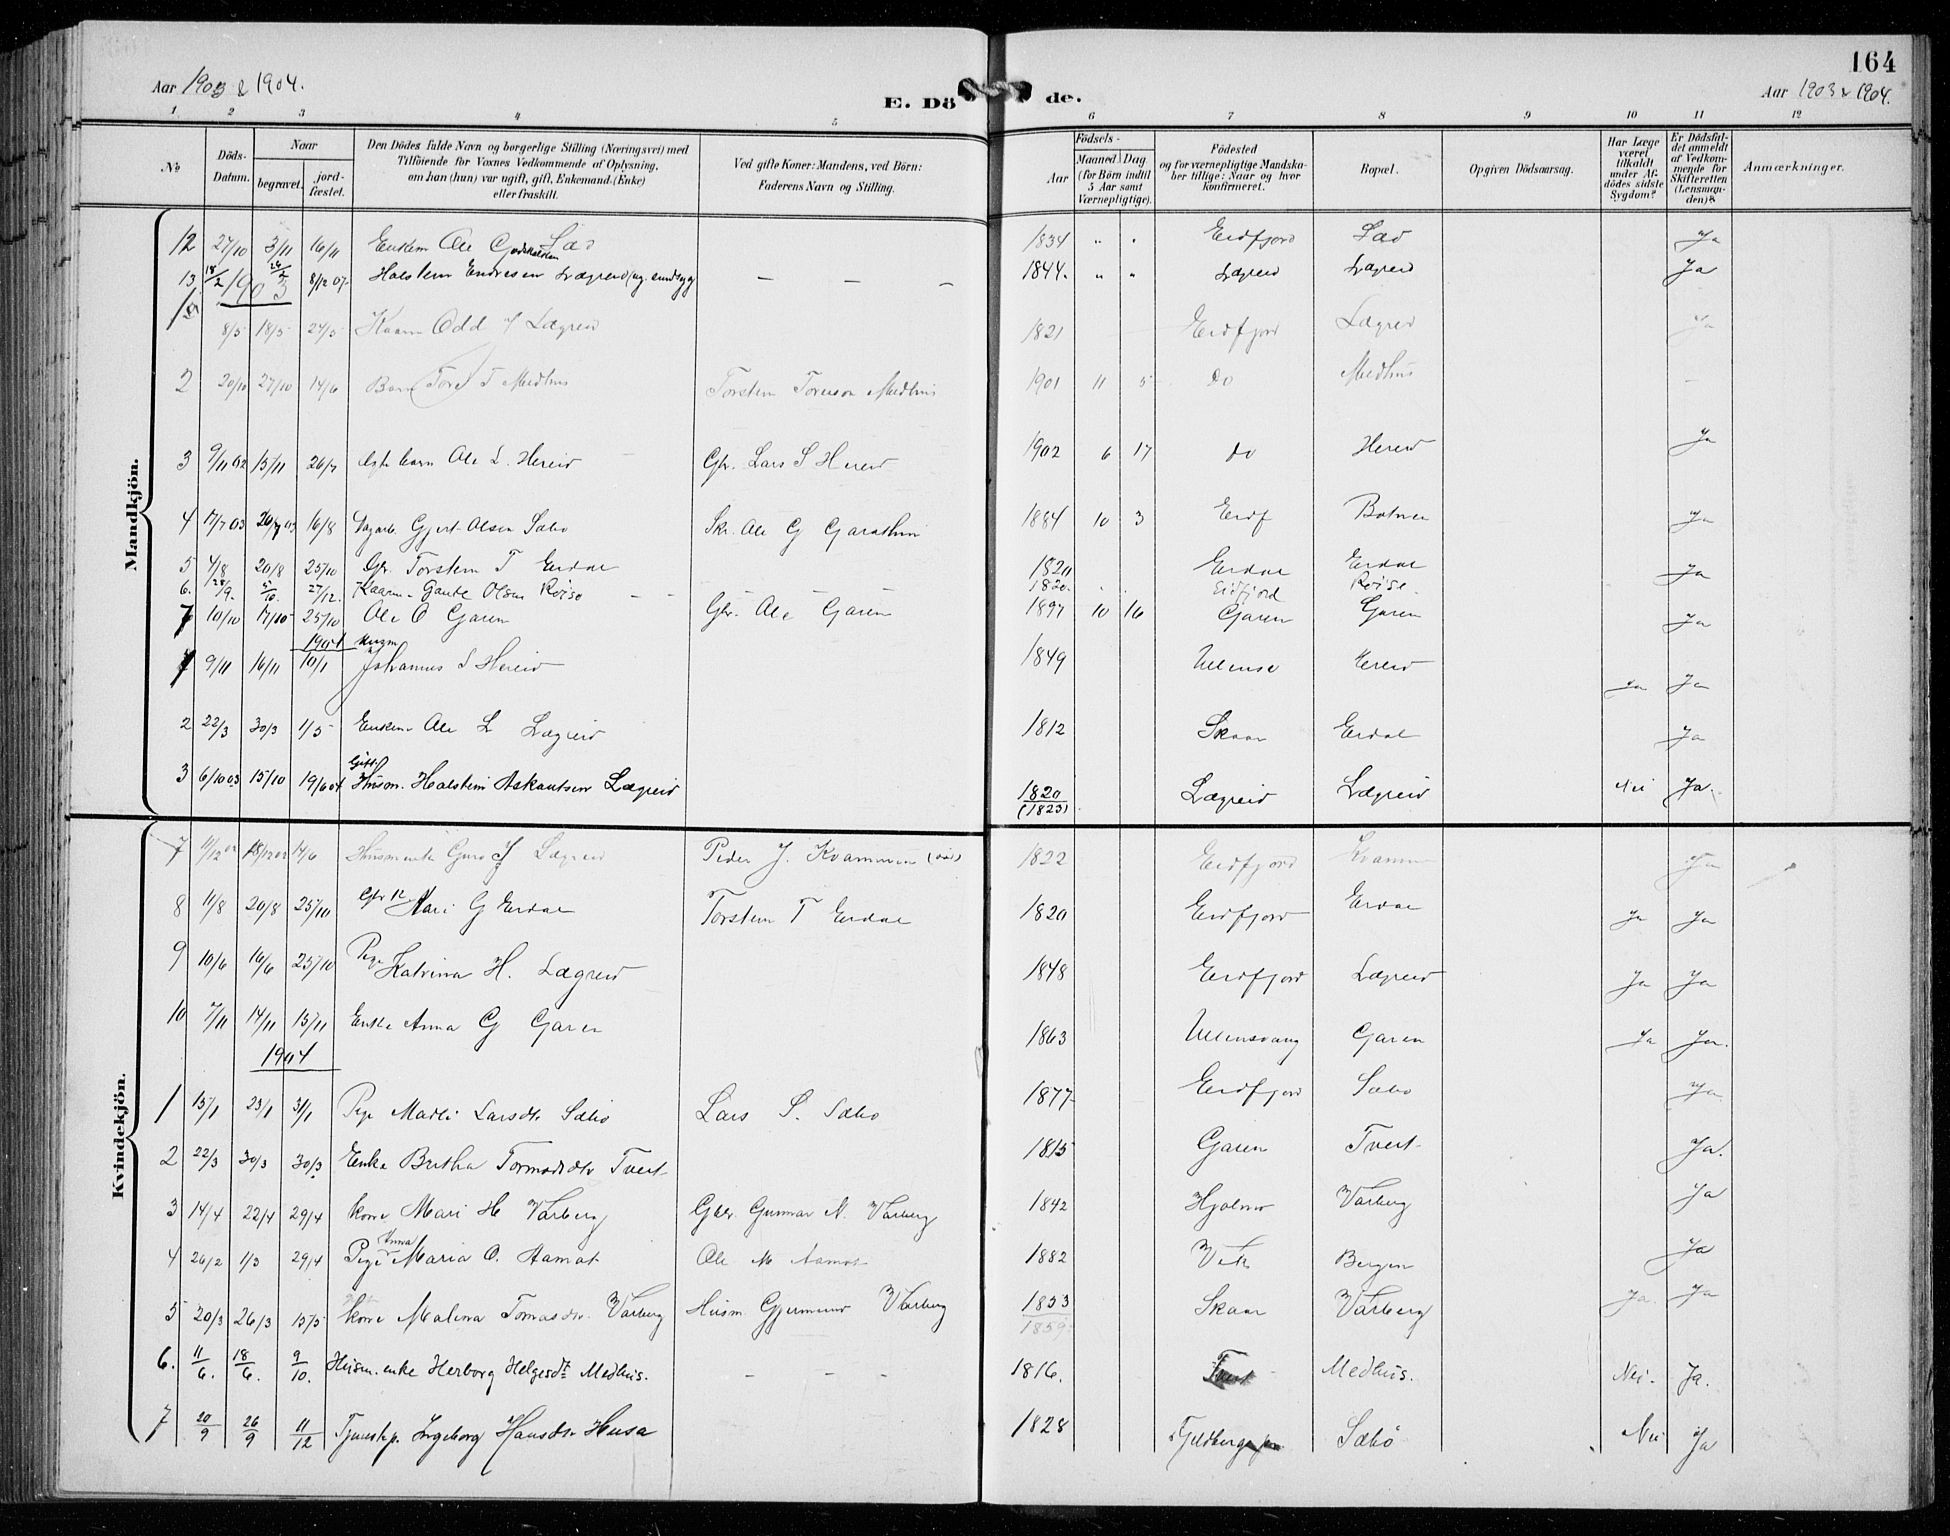 164
Aar 1903 & 1904.
E. Dö de.
Aar 1903 & 1904.
1 2 3 4 5 6 7 8 9 10 11 12
No
Döds-Datum.
Naar
begravet.
jord-fæstet.
Den Dödes fulde Navn og borgerlige Stilling (Næringsvei) med
Tilföiende for Voxnes Vedkommende af Oplysning,
om han (hun) var ugift, gift, Enkemand (Enke)
eller fraskilt.
Ved gifte Koner: Mandens, ved Börn:
Faderens Navn og Stilling.
Födsels-
Aar
Maaned Dag
(for Börn indtil
5 Aar samt
Værnepligtige).
Födested
og for værnepligtige Mandska-
ber tillige: Naar og hvor
konfirmeret.
Bopæl.
Opgiven Dödsaarsag.
Har Læge
været
tilkaldt
under Af-
dödes sidste
Sygdom?
Er Dödsfal-
det anmeldt
af Vedkom-
mende for
Skifteretten
(Lensman-
den)?
Anmærkninger.
Mandkjön.
12 27/10 3/11 16/11 Enkem Ole Læ 1834 " " Eidfjord Ja
13 18/2 8/12 07 Halstein Endresen Lægreid (ug. sindsyg — — — 1844. " " Lægreid Lægreid Ja
1903
8/5 18/5 24/5 Kaarm Odd Lægreid 1821 Eidfjord Lægreid Ja
2 20/10 27/10 14/6 Barn Tore T Medhus Torstein Toreson Medhus 1901 11 5 do Medhus —
3 9/11 02 15/11 26/7 barn Ole L. Hereid Gbr. Lars S Hereid 1902 6 17 do Hereid Ja
4 17/7 03 20/7 03 16/8 Dagarb. Gjert Olsen Sæbo Ole G Garathun 1884 10 3 Eidf Ja
5 4/8 20/8 25/10 Gbr. Torstein T Eidal 1820 Eidal Eidal Ja
6. 28/9. 5/10. 27/12. Kaarm Gaute Olsen Röise — — 1820. Eidfjord Röise.
7 10/10 17/10 25/10 Ole O Garen Gbr. Ole Garen 1897 10 16 Garen Garen Ja
1904
9/11 16/11 10/1 Husm Johannes S Hereid 1849 Ullensv Hereid Ja Ja
2 22/3 30/3 1/5 Enkem Ole L Lægreid 1812 Skaar Eidal Ja
3 6/10 03 15/10 19/6 04 Gift Husm. Halstein Askautsen Lægreid 1820 (1823) Lægreid Lægreid Nei Ja.
Kvindekjön.
7 11/12 02 18/12 02 14/6 Husmenke Guro Lægreid Peder J. Kvammen 1822 Eidfjord Kvammen Ja
8 11/8 20/8 25/10 Mari G Eidal Torstein T Eidal 1820 Eidfjord Eidal Ja Ja
9 10/6 16/6 25/10 Pige Katrina H. Lægreid 1848 Eidfjord Lægreid Ja Ja
10 7/11 14/11 15/11 Enke Anna G Garen 1863 Ullensvang Garen Ja Ja.
1904
1 15/1 23/1 31/1 Pige Marthe Larsdtr Sæbo Lars S. Sæbo 1877 Eidfjord Sæbo Ja
2 22/3 30/3 30/3 Enke Britha Tormodsdtr Tveit 1815 Garen Tveit Ja.
3 14/4 22/4 29/4 Kone Mari H Varberg Gbr. Gunnar N. Varberg 1842 Hjolmo Varberg Ja
4 26/2 1/3 29/4 Pige Anna Maria O. Aamot Ole M Aamot 1882 Vik Bergen Ja
5 20/3 26/3 15/5 Kone Malena Tomasdtr. Varberg Husm Gjermund Varberg 1853 1859 Skaar Varberg Ja. Ja
6. 11/6. 18/6. 9/10. Husm. enke Herborg Helgesdtr Medhus. — — — 1816. Tveit Medhus. Nei. Ja.
7 20/9 26/9 11/12 Tjenestp. Ingeborg Hansdtr Husa 1828 Sæbö Nei Ja